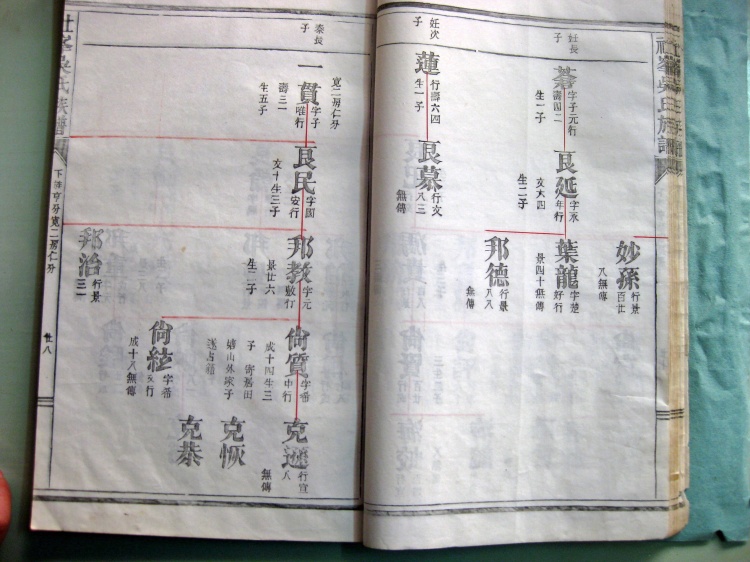 妊長
子
莟
字子元行
壽四二
生一子
良延
字永
年行
文六四
生二子
妙孫
行景
百廿
八無傳
葉龍
字楚
好行
景四十無傳
邦德
行景
八八
無傳
妊次
子
蓮
行壽六四
生一子
良慕
行文
八三
無傳
泰長
子
寬二房仁分
一貫
字子
唯行
壽三一
生五子
良民
字國
安行
文十生三子
邦教
字元
敷行
景廿六
生二子
邦治
行景
三一
尙質
字希
中行
成十四生三
子
尙紘
字希
成十八無傳
克遜
行宣
八
無傳
克恢
克恭
吳氏族譜
下 亨分寬二房仁分
廿八